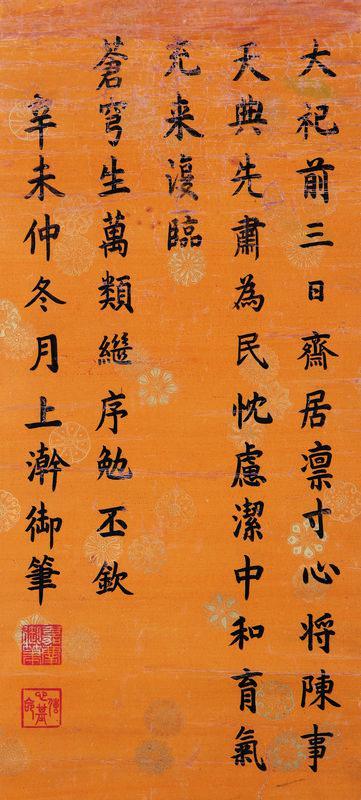 大祀前三日齋居凛寸心将陳事
天典先肅為民忱慮潔中和育氣
充来復臨
蒼穹生萬類繼序勉丕欽
辛未仲冬月上澣御筆